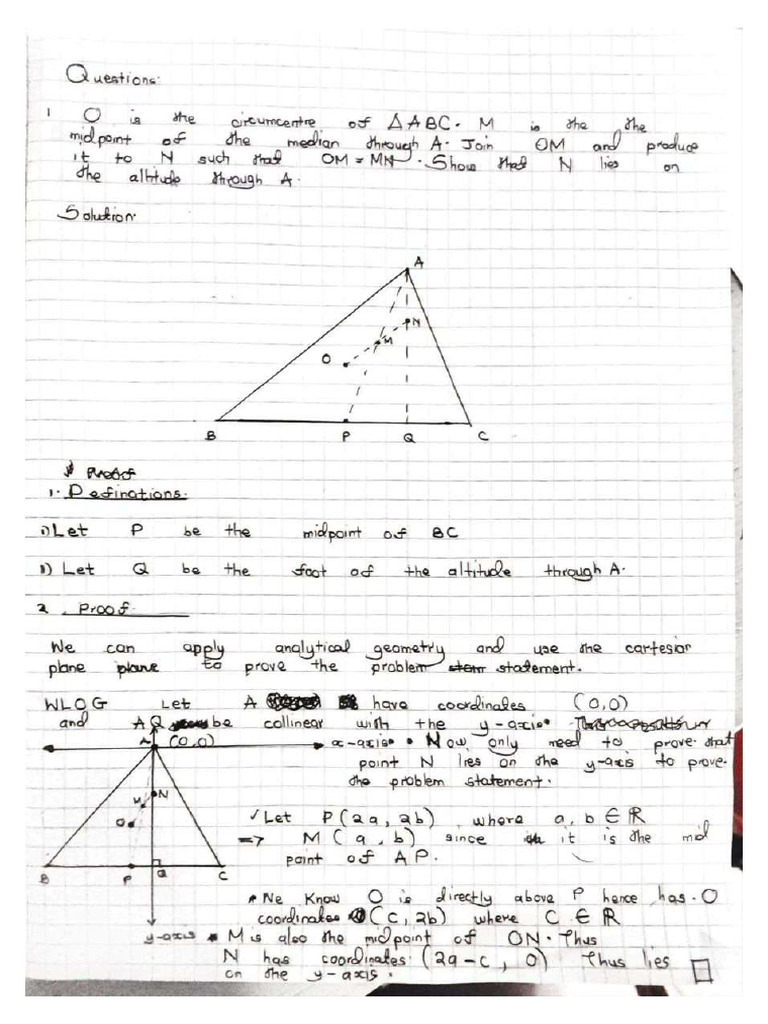 Questions:
1 O is the circumcentre of △ABC. M is the the
midpoint of the median through A. Join OM and produce
it to N such that OM = MN. Show that N lies on
the altitude through A.
Solution:
A
N
M
O
B P Q C
Proof
1. Definations.
i) Let P be the midpoint of BC
ii) Let Q be the foot of the altitude through A.
2. Proof.
We can apply analytical geometry and use the cartesian
plane plane to prove the problem statement.
WLOG Let A have coordinates (0,0)
and AQ be collinear with the y-axis.
A (0,0) x-axis • Now only need to prove that
point N lies on the y-axis to prove
the problem statement.
N
M
O
B P Q C
y-axis
✓ Let P(2a, 2b), where a, b ∈ ℝ
=> M(a, b) since it is the mid
point of AP.
• We know O is directly above P hence has O
coordinates (c, 2b) where C ∈ ℝ
• M is also the midpoint of ON. Thus
N has coordinates (2a-c, 0) Thus lies
on the y-axis. □